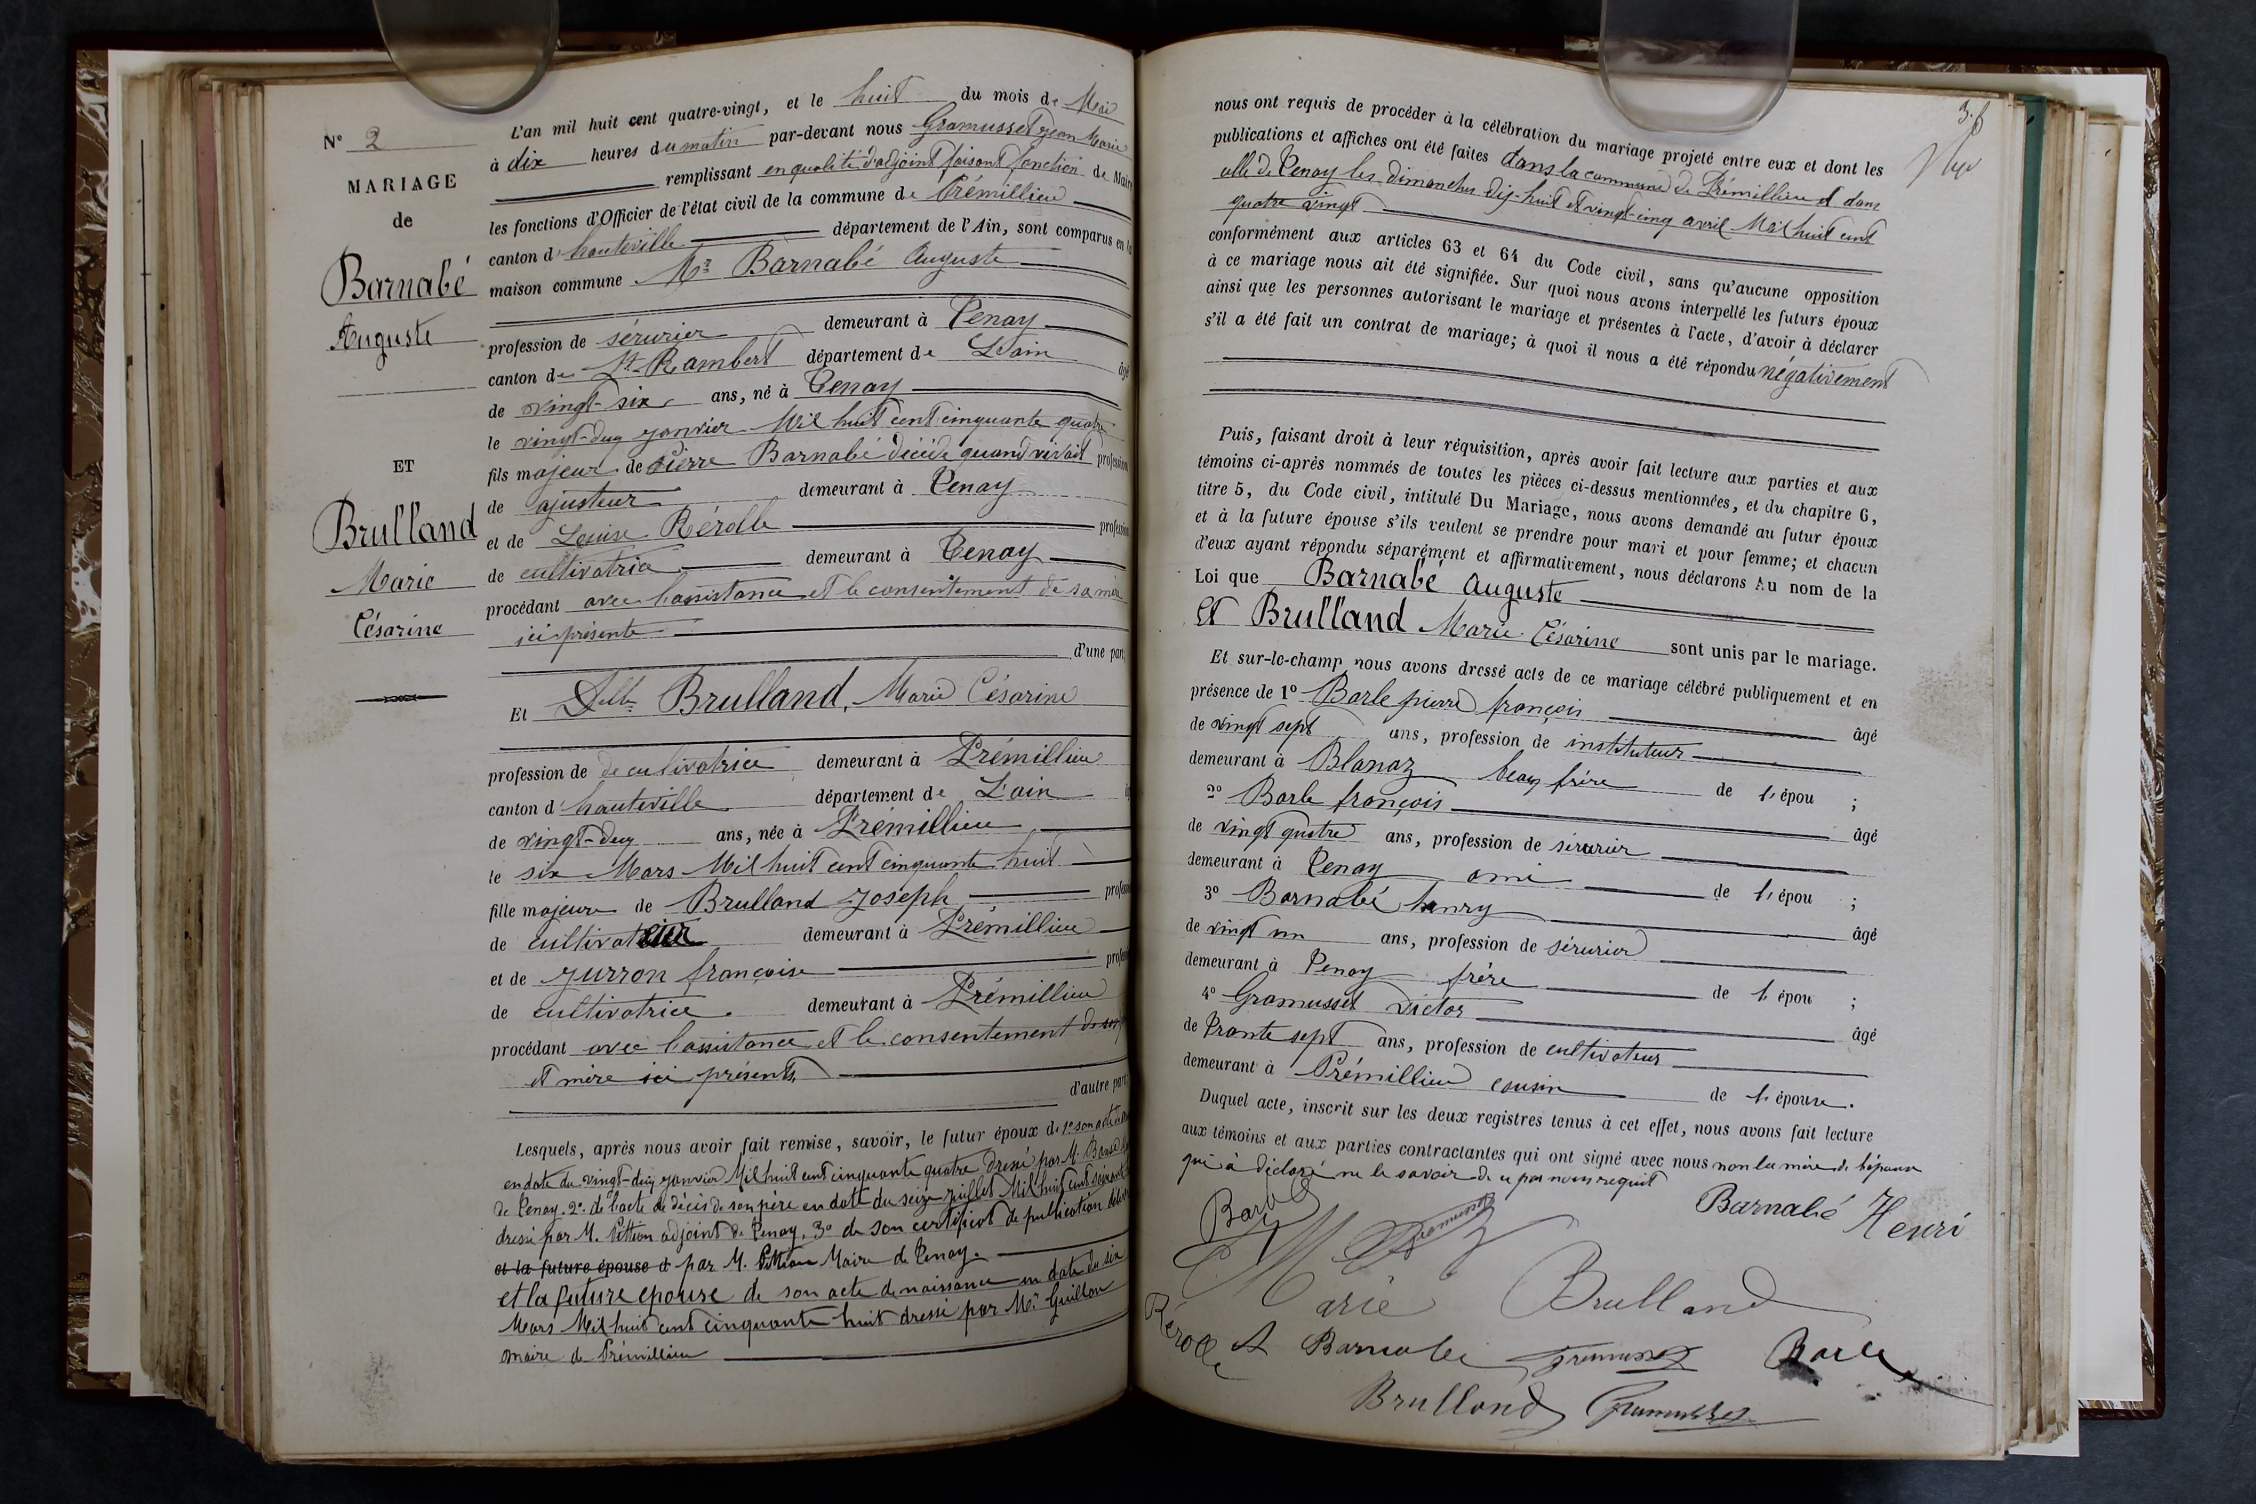 N° 2
MARIAGE
de
Barnabé
Auguste
ET
Brulland
Marie
Césarine
L'an mil huit cent quatre-vingt, et le huit du mois de Mai
à dix heures du matin par-devant nous Gramusset Jean Marie
remplissant en qualité d'adjoint faisant fonction de Maire
les fonctions d'Officier de l'état civil de la commune de Prémillieu
canton d' hauteville département de l'Ain, sont comparus en la
maison commune Mr Barnabé Auguste
profession de sérurier demeurant à Tenay
canton de St Rambert département de L'ain âgé
de vingt-six ans, né à Tenay
le vingt-deux janvier Mil huit cent cinquante quatre
fils majeur de Pierre Barnabé décédé quand vivait profession
de ajusteur demeurant à Tenay
et de Louise Rérolle profession
de cultivatrice demeurant à Tenay
procédant avec l'assistance et le consentement de sa mère
ici présente
d'une part,
Et Delle Brulland, Marie Césarine
profession de de cultivatrice demeurant à Prémillieu
canton d' hauteville département de L'ain
de vingt-deux ans, née à Prémillieu
le six Mars Mil huit cent cinquante huit
fille majeure de Brulland Joseph profession
de cultivateur demeurant à Prémillieu
et de Jurron françoise profession
de cultivatrice demeurant à Prémillieu
procédant avec l'assistance et le consentement de ses
et mère ici présents
d'autre part,
Lesquels, après nous avoir fait remise, savoir, le futur époux de 1° son acte
en date du vingt-deux janvier Mil huit cent cinquante quatre dressé par M.
de Tenay. 2° de l'acte de décès de son père en date du seize juillet Mil huit cent
dressé par M. Pittion adjoint de Tenay. 3° de son certificat de publication
et la future épouse d par M. Pittion Maire de Tenay.
et la future épouse de son acte de naissance en date du six
Mars Mil huit cent cinquante huit dressé par Mr Guillon
maire de Prémillieu
36
nous ont requis de procéder à la célébration du mariage projeté entre eux et dont les
publications et affiches ont été faites dans la commune de Prémillieu et dans
celle de Tenay les dimanches dix-huit et vingt-cinq avril Mil huit cent
quatre vingt
conformément aux articles 63 et 64 du Code civil, sans qu'aucune opposition
à ce mariage nous ait été signifiée. Sur quoi nous avons interpellé les futurs époux
ainsi que les personnes autorisant le mariage et présentes à l'acte, d'avoir à déclarer
s'il a été fait un contrat de mariage; à quoi il nous a été répondu négativement
Puis, faisant droit à leur réquisition, après avoir fait lecture aux parties et aux
témoins ci-après nommés de toutes les pièces ci-dessus mentionnées, et du chapitre 6,
titre 5, du Code civil, intitulé Du Mariage, nous avons demandé au futur époux
et à la future épouse s'ils veulent se prendre pour mari et pour femme; et chacun
d'eux ayant répondu séparément et affirmativement, nous déclarons Au nom de la
Loi que Barnabé Auguste
Et Brulland Marie Césarine sont unis par le mariage.
Et sur-le-champ nous avons dressé acte de ce mariage célébré publiquement et en
présence de 1° Barle pierre françois âgé
de vingt sept ans, profession de instituteur
demeurant à Blanaz beau frère de l' épou ;
2° Barle françois âgé
de vingt quatre ans, profession de sérurier
demeurant à Tenay ami de l' épou ;
3° Barnabé henry âgé
de vingt un ans, profession de sérurier
demeurant à Tenay frère de l' épou ;
4° Gramusset Victor âgé
de trante sept ans, profession de cultivateur
demeurant à Prémillieu cousin de l' épouse.
Duquel acte, inscrit sur les deux registres tenus à cet effet, nous avons fait lecture
aux témoins et aux parties contractantes qui ont signé avec nous non la mère de l'épouse
qui à déclaré ne le savoir de ce par nous requit
Barnabé Henri
Barle
Gramusset
Marie Brulland
Rérolle
A Barnabé Gramusset Barle
Brulland Gramusset